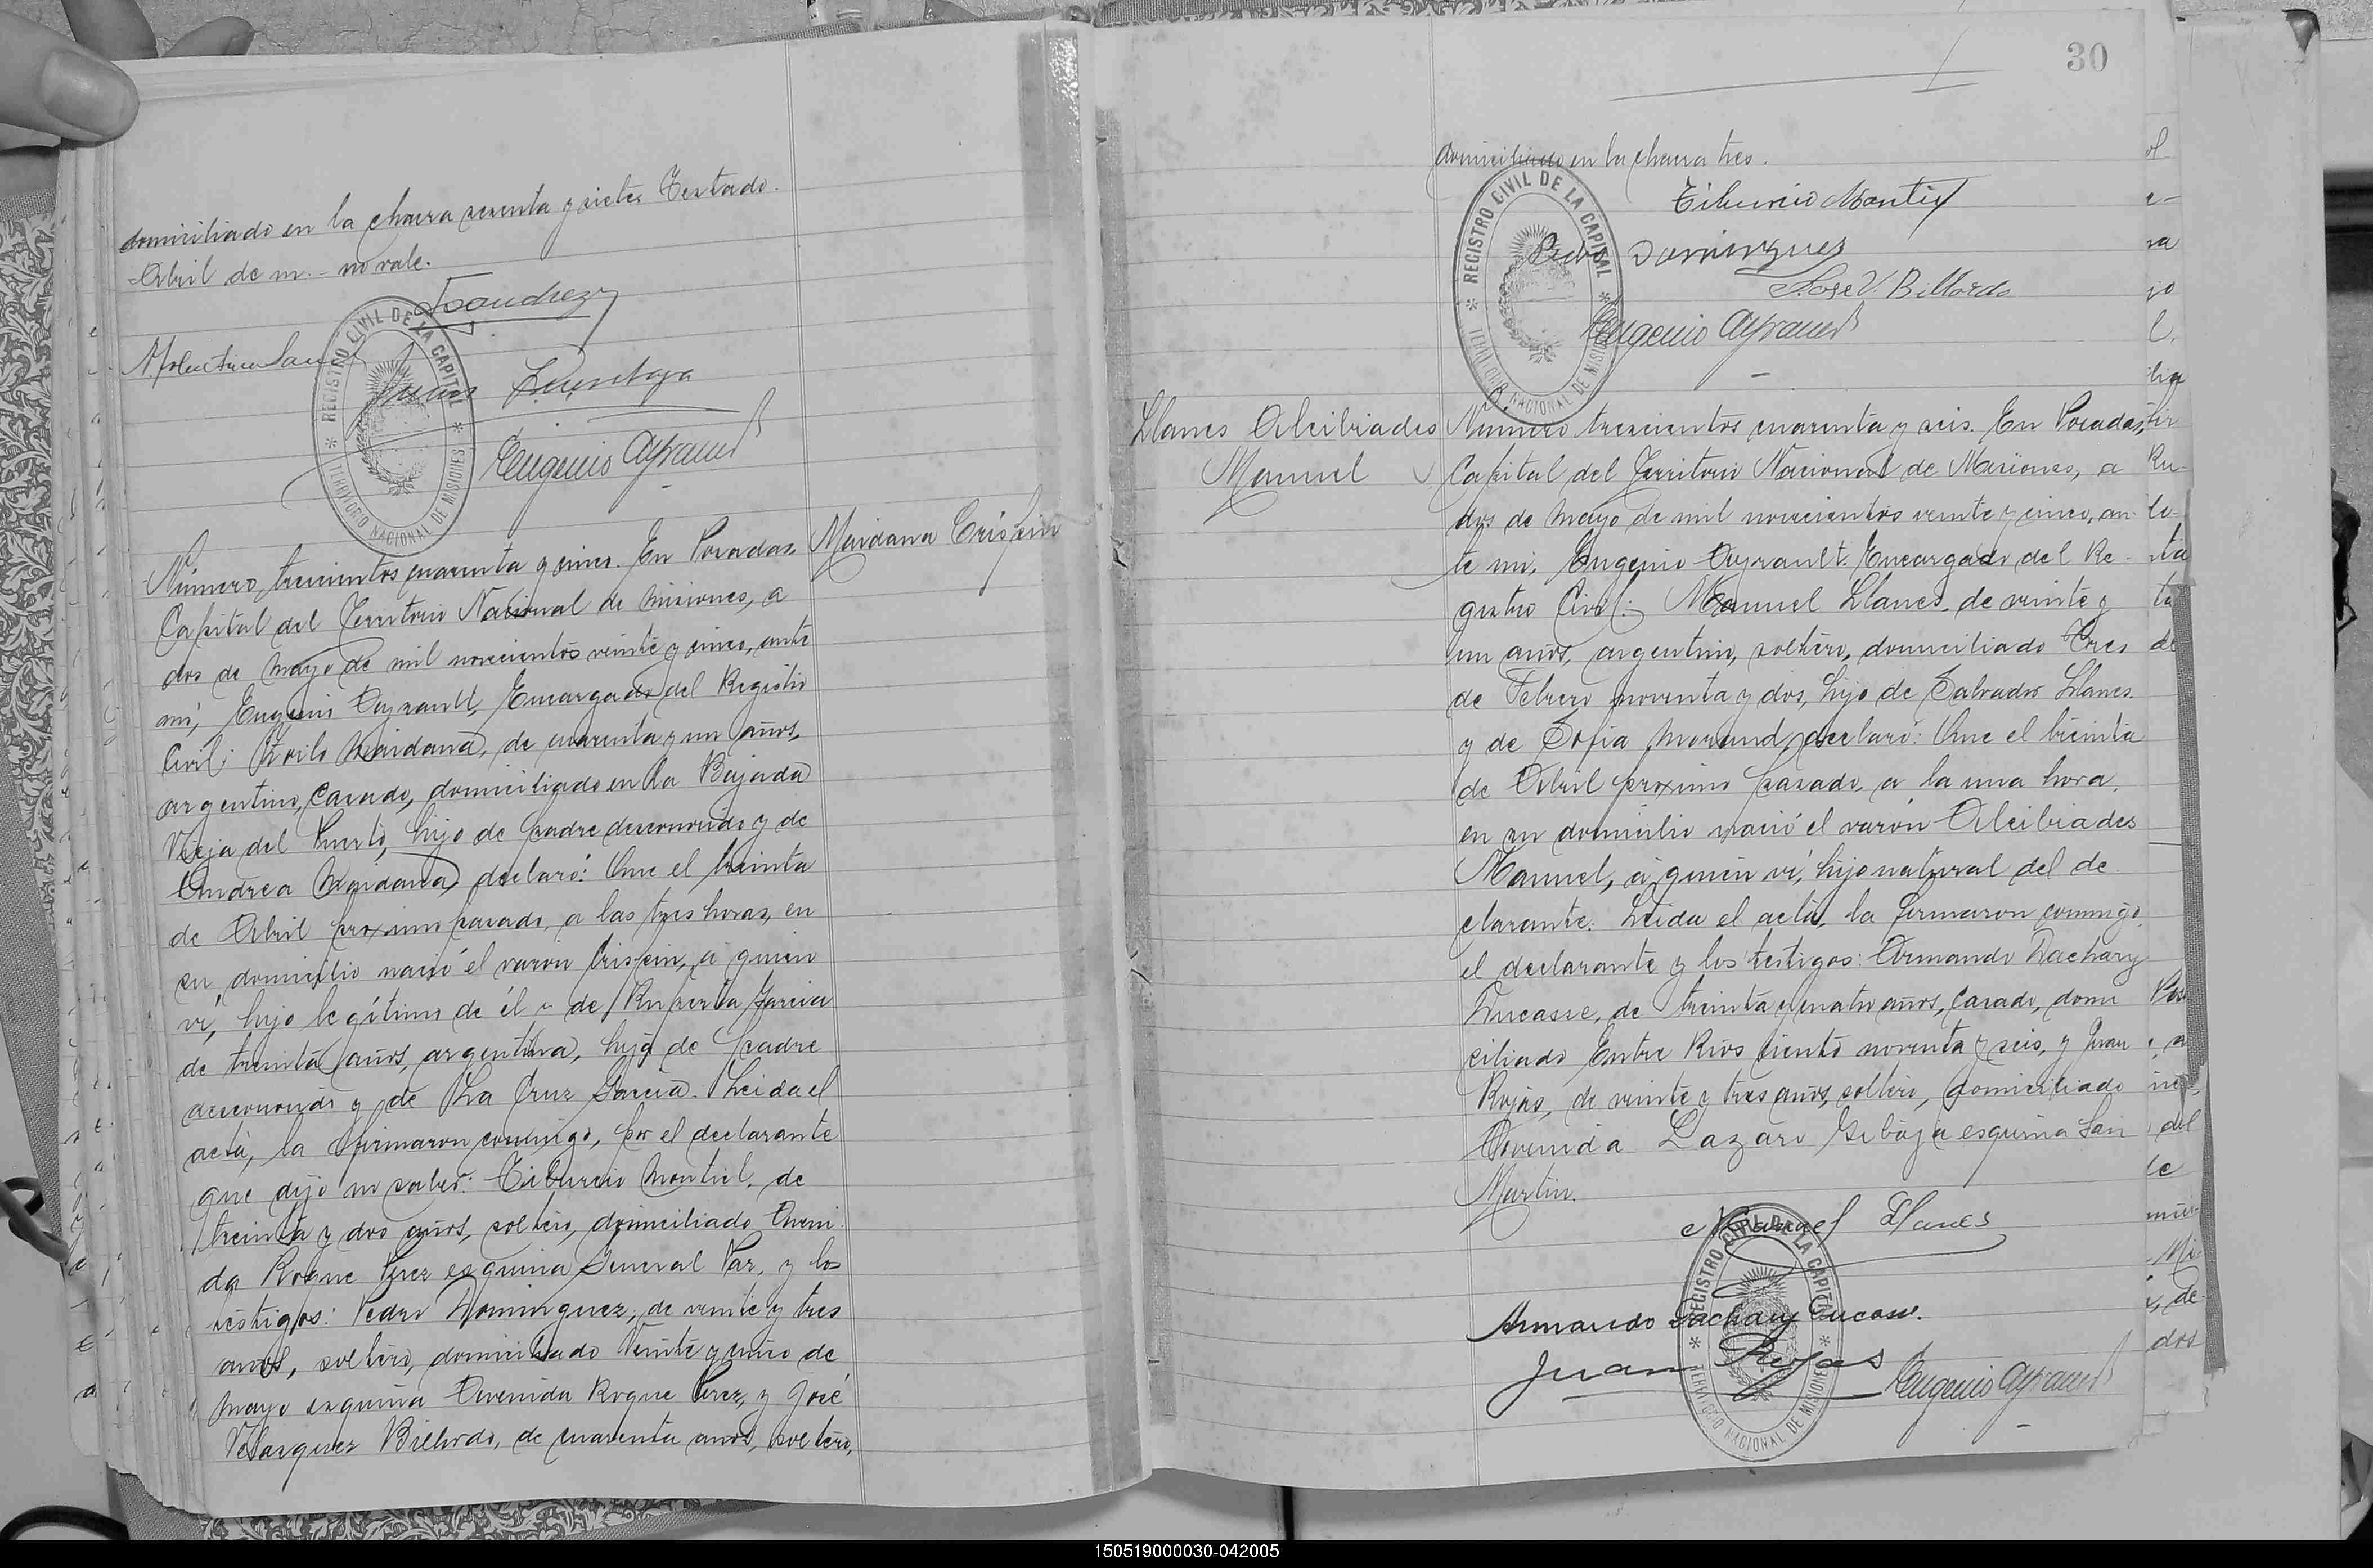 domiciliado en la chacra sesenta y siete. Testado
-Abril de m.- no vale.
Juan
Eugenio Ayrault
REGISTRO CIVIL DE LA CAPITAL
TERRITORIO NACIONAL DE MISIONES
Maidana Crispin
Número trescientos cuarenta y cinco. En Posadas,
Capital del Territorio Nacional de Misiones, a
dos de Mayo de mil novecientos veinte y cinco, ante
mi, Eugenio Ayrault, Encargado del Registro
Civil: Maidana, de cuarenta y un años,
argentino, casado, domiciliado en la Bajada
Vieja del Puerto, hijo de padre desconocido y de
Andrea Maidana, declaró: Que el treinta
de Abril proximo pasado, a las tres horas, en
su domicilio nació el varon Crispin, a quien
vi, hijo legítimo de él y de Ruperta Garcia
de treinta años, argentina, hija de padre
desconocido y de La Cruz Garcia. Leida el
acta, la firmaron conmigo, por el declarante
que dijo no saber: Tiburcio Montiel, de
treinta y dos años, soltero, domiciliado Aveni-
da Roque Perez esquina General Paz, y los
testigos: Pedro Dominguez, de veinte y tres
años, soltero, domiciliado Veinte y cinco de
Mayo esquina Avenida Roque Perez, y José
Velasquez Billordo, de cuarenta años, soltero,
30
domiciliado en la chacra tres.
Tiburcio Montiel
Pedro Dominguez
José V. Billordo
Eugenio Ayrault
REGISTRO CIVIL DE LA CAPITAL
TERRITORIO NACIONAL DE MISIONES
Llanes Alcibiades
Manuel
Número trescientos cuarenta y seis. En Posadas,
Capital del Territorio Nacional de Misiones, a
dos de Mayo de mil novecientos veinte y cinco, an-
te mi, Eugenio Ayrault, Encargado del Re-
gistro Civil: Manuel Llanes, de veinte y
un años, argentino, soltero, domiciliado Tres
de Febrero noventa y dos, hijo de Salvador Llanes
y de Sofia Morand, declaró: Que el treinta
de Abril proximo pasado, a la una hora,
en su domicilio nació el varón Alcibiades
Manuel, a quien vi, hijo natural del de-
clarante. Leida el acta, la firmaron conmigo,
el declarante y los testigos: Armando Dachary
Ducasse, de treinta y cuatro años, casado, domi
ciliado Entre Rios ciento noventa y seis, y Juan
Rojas, de veinte y tres años, soltero, domiciliado
Avenida Lazaro Gibaja esquina San
Martin.
Manuel Llanes
Armando Dachary Ducasse.
Juan Rojas
Eugenio Ayrault
REGISTRO CIVIL DE LA CAPITAL
TERRITORIO NACIONAL DE MISIONES
150519000030-042005